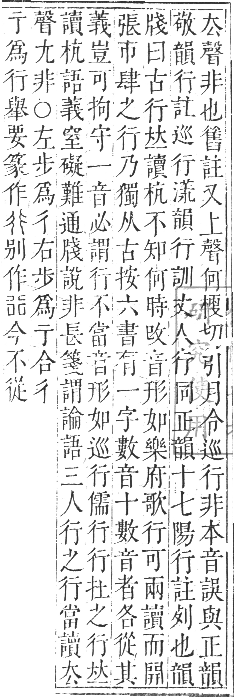 厺聲非也舊註又上聲何梗切引月令巡行非本音誤與正韻
敬韻行註巡行漾韻行訓丈人行同正韻十七陽行註列也韻
牋曰古行𠀤讀杭不知何時攺音形如樂府歌行可兩讀而開
張市肆之行乃獨从古按六書有一字數音十數音者各從其
義豈可拘守一音必謂行不當音形如巡行儒行行灶之行𠀤
讀杭語義窒礙難通牋說非長箋謂論語三人行之行當讀厺
聲尢非○左步爲彳右步爲亍合彳
亍爲行舉要篆作𧗟別作𠾅今不從